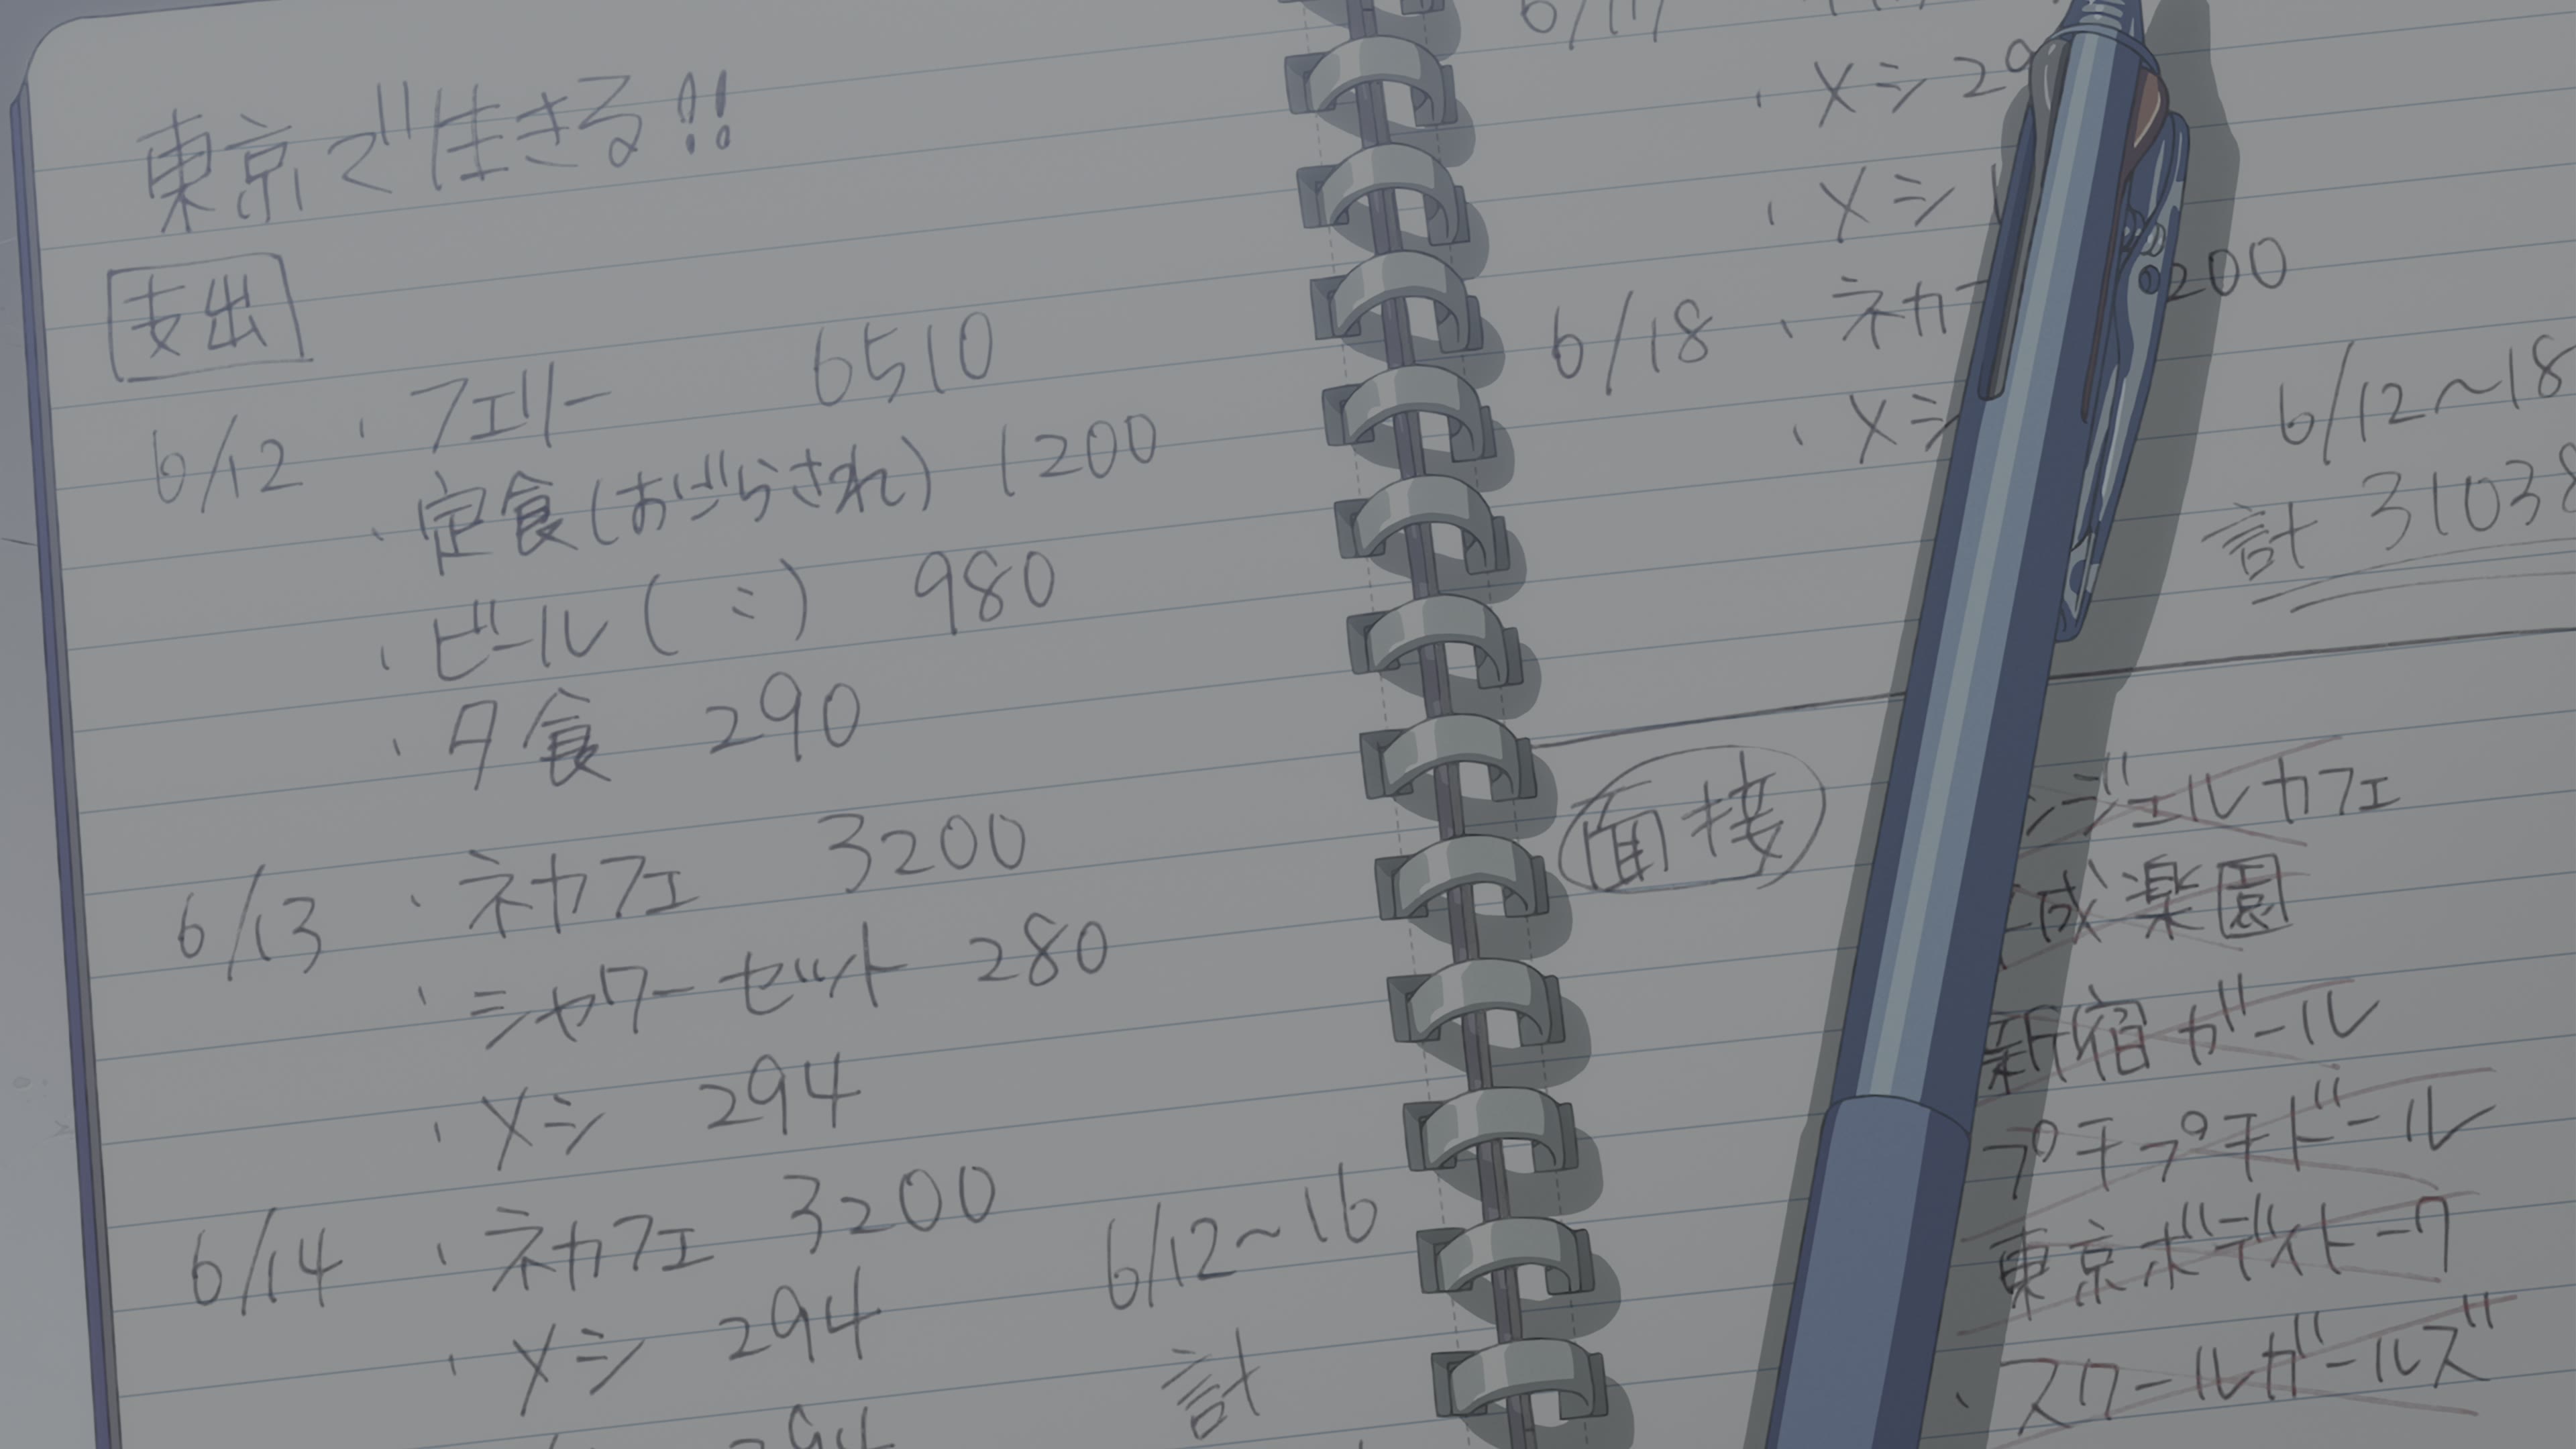 東京で生きる!!
支出
6/12 ・フェリー 6510
・定食(おごらされ) 1200
・ビール(〃) 980
・夕食 290
6/13 ・ネカフェ 3200
・シャワーセット 280
・メシ 294
6/14 ・ネカフェ 3200
・メシ 294
294
6/12〜16
計
・メシ 29
・メシ
6/18 ・ネカフ 200
・メシ
6/12〜18
計 31038
面接
ンジェルカフェ
成楽園
新宿ガール
プチプチドール
東京ボーイズトーク
・スクールガールズ